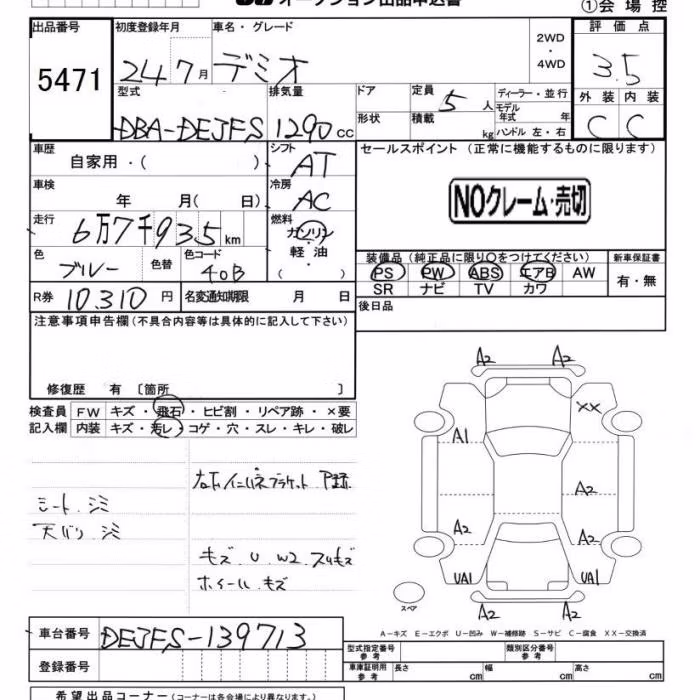 オークション出品申込書
①会場控
出品番号
5471
初度登録年月
24 7月
車名・グレード
デミオ
2WD
・
4WD
評価点
3.5
外装 内装
C C
型式
DBA-DEJFS
排気量
1290cc
ドア
定員
5人
形状
積載
kg
ディーラー・並行
モデル年式 年
ハンドル 左・右
車歴
自家用・( )
シフト
AT
セールスポイント (正常に機能するものに限ります)
NOクレーム・売切
車検
年 月( 日)
冷房
AC
走行
6万7千935km
燃料
ガソリン
・
軽油
( )
色
ブルー
色替
色コード
40B
装備品 (純正品に限り○をつけてください)
PS PW ABS エアB AW
SR ナビ TV カワ
新車保証書
有・無
R券 10310円
名変通知期限 月 日
後日品
注意事項申告欄(不具合内容等は具体的に記入して下さい)
修復歴 有 〔箇所 〕
検査員 FW キズ・飛石・ヒビ割・リペア跡・×要
記入欄 内装 キズ・汚レ・コゲ・穴・スレ・キレ・破レ
シート シミ
天バリ シミ
キズ U W2 スリキズ
ホイール キズ
A2 A2
XX
A1
A2
A2 A2
UA1 UA1
A2 A2
スペア
A-キズ E-エクボ U-凹み W-補修跡 S-サビ C-腐食 XX-交換済
車台番号 DEJFS-139713
登録番号
型式指定番号
参考
類別区分番号
参考
車庫証明用
参考
長さ cm 幅 cm 高さ cm
希望出品コーナー(コーナーは各会場により異なります。)